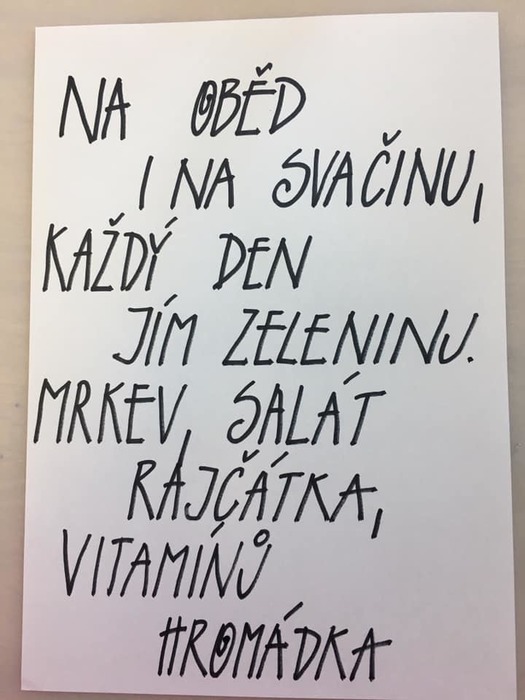 NA OBĚD
I NA SVAČINU,
KAŽDÝ DEN
JÍM ZELENINU.
MRKEV, SALÁT
RAJČÁTKA,
VITAMÍNŮ
HROMÁDKA